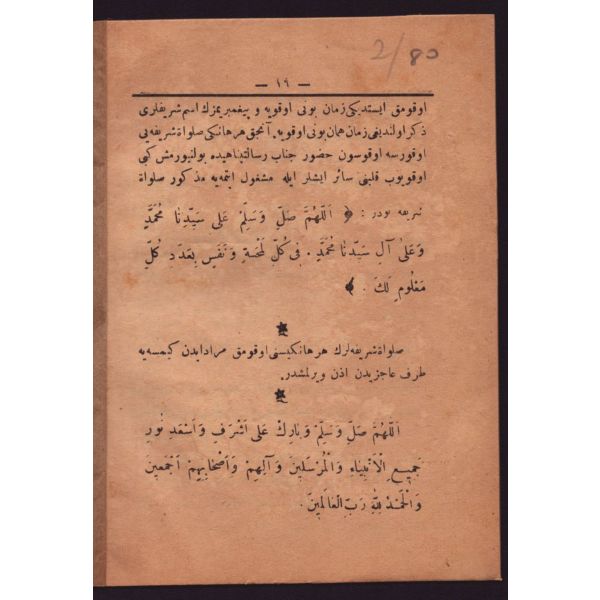 2/80
— ١٩ —
اوقومق ايستديكی زمان بونی اوقويه و پيغمبريمزك اسم شريفلری
ذكر اولنديغی زمان همان بونی اوقويه. آنجق هر هانكی صلواة شريفه يی
اوقورسه اوقوسون حضور جناب رسالتپناهيده بولنيورمش كبی
اوقويوب قلبنی سائر ايشلر ايله مشغول ايتميه مذكور صلواة
شريفه بودر: ﴿ اَللّٰهُمَّ صَلِّ وَسَلِّمْ عَلٰى سَيِّدِنَا مُحَمَّدٍ
وَعَلٰى آلِ سَيِّدِنَا مُحَمَّدٍ. فِى كُلِّ لَمْحَةٍ وَنَفَسٍ بِعَدَدِ كُلِّ
مَعْلُومٍ لَكَ. ﴾
صلواة شريفه لرك هر هانكيسنی اوقومق مراد ايدن كيمسه يه
طرف عاجزيدن اذن ويرلمشدر.
اَللّٰهُمَّ صَلِّ وَسَلِّمْ وَبَارِكْ عَلٰى اَشْرَفِ وَاَسْعَدِ نُورِ
جَمِيعِ الْاَنْبِيَاءِ وَالْمُرْسَلِينَ وَآلِهِمْ وَاَصْحَابِهِمْ اَجْمَعِينَ
وَالْحَمْدُ لِلّٰهِ رَبِّ الْعَالَمِينَ.